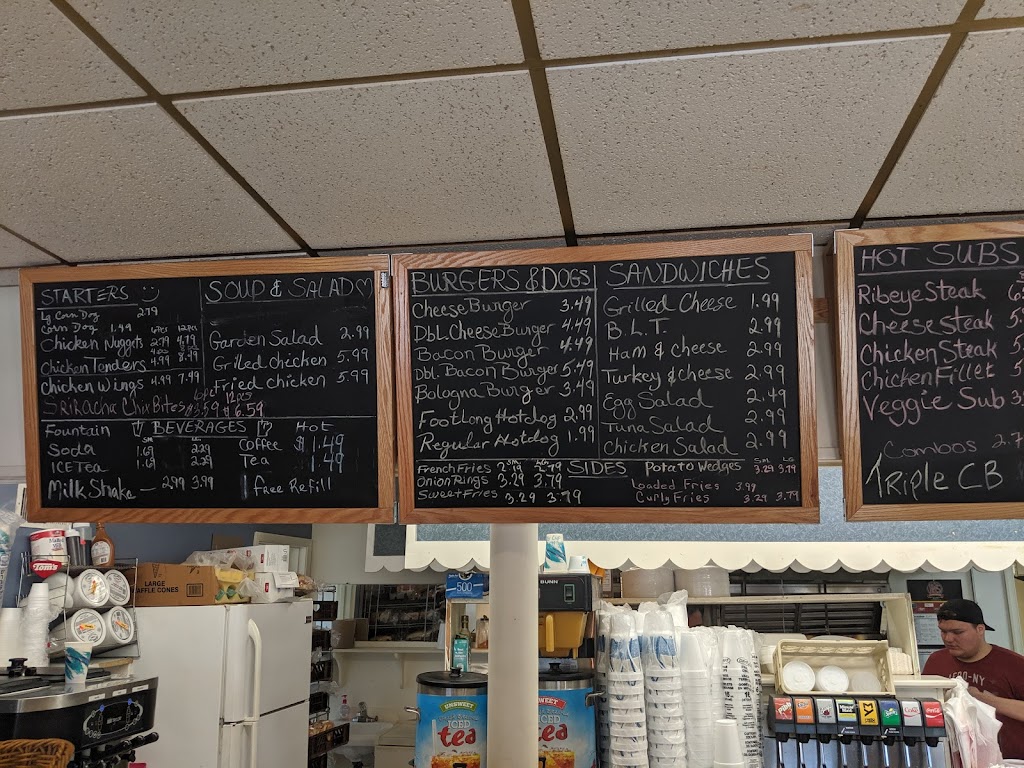 STARTERS
Lg Corn Dog 2.79
Corn Dog 1.49
6pcs 12pcs
Chicken Nuggets 2.79 4.79
Chicken Tenders 4.99 8.49
Chicken Wings 4.99 7.99
Srikacha Chix Bites 3.59 6.59
SOUP & SALAD
Garden Salad 2.99
Grilled Chicken 5.99
Fried Chicken 5.99
BEVERAGES
Fountain
Sm Lg
Soda 1.69 2.29
ICE Tea 1.69 2.29
Milk Shake — 2.99 3.99
Hot
Coffee $1.49
Tea 1.49
1 free Refill
BURGERS & DOGS
Cheese Burger 3.49
Dbl. Cheese Burger 4.49
Bacon Burger 4.49
Dbl. Bacon Burger 5.49
Bologna Burger 3.49
Footlong Hotdog 2.99
Regular Hotdog 1.99
SANDWICHES
Grilled Cheese 1.99
B.L.T. 2.99
Ham & Cheese 2.99
Turkey & Cheese 2.99
Egg Salad 2.49
Tuna Salad 2.99
Chicken Salad 2.99
SIDES
French Fries 2.79
Onion Rings 3.29 3.79
Sweet Fries 3.29 3.79
Sm Lg
Potato Wedges 3.29 3.79
Loaded Fries 3.99
Curly Fries 3.29 3.79
HOT SUBS
Ribeye Steak
Cheese Steak
Chicken Steak
Chicken Fillet
Veggie Sub
Combos 2.7
Triple CB
LARGE
WAFFLE CONES
Tom's
500
BUNN
UNSWEET
ICED
tea
ICED
tea
Coca-Cola